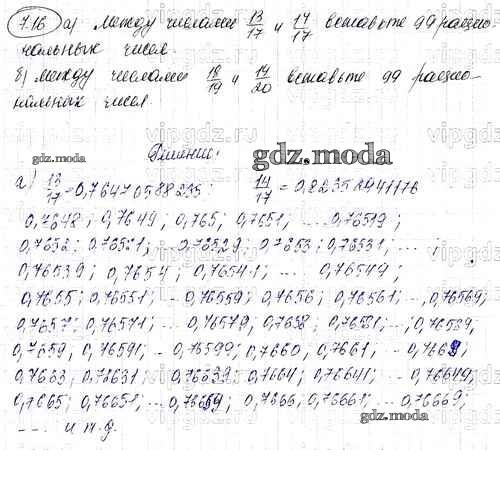 7.16 а) Между числами 13/17 и 14/17 вставьте 99 рацио-
нальных чисел.
б) между числами 18/19 и 19/20 вставьте 99 рацио-
нальных чисел.
Решение:
gdz.moda
gdz.moda
а) 13/17 = 0,76470588235; 14/17 =
0,7648; 0,7649; 0,765; 0,7651; ... 0,76519;
0,7652; 0,76521; ... 0,76529; 0,7653; 0,76531; ...
0,76539; 0,7654; 0,76541; ... 0,76549;
0,7655; 0,76551; ... 0,76559; 0,7656; 0,76561; ..., 0,76569;
0,7657; 0,76571; ... 0,76579; 0,7658; 0,76581; ...; 0,76589,
0,7659, 0,76591; ... 0,76599; 0,7660, 0,7661; ... 0,7669;
0,7663, 0,76631; ... 0,76639; 0,7664; 0,76641; ... 0,76649;
0,7665; 0,76651; ... 0,76659; 0,7666, 0,76661; ... 0,76669;
.... и т.д.
gdz.moda